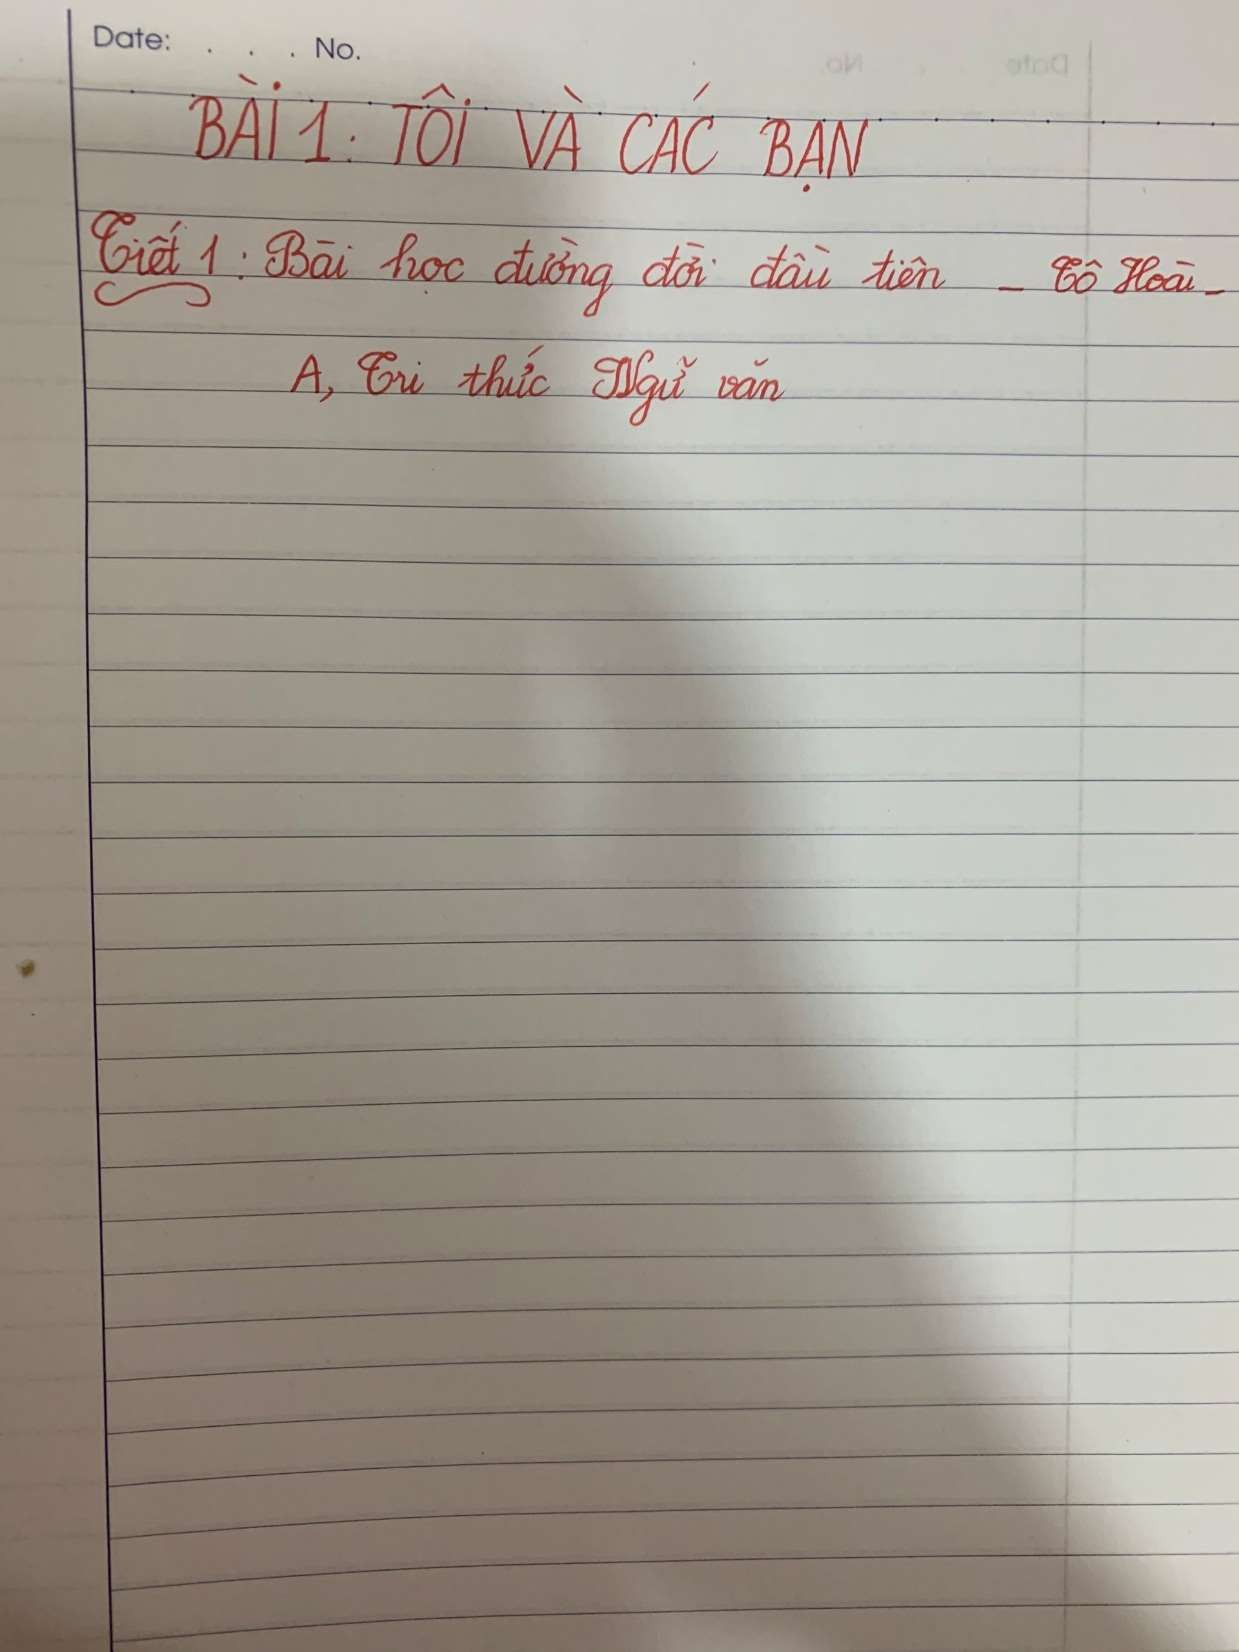 Date: . . . No.
BÀI 1: TÔI VÀ CÁC BẠN
Tiết 1: Bài học đường đời đầu tiên - Tô Hoài -
A, Tri thức Ngữ văn